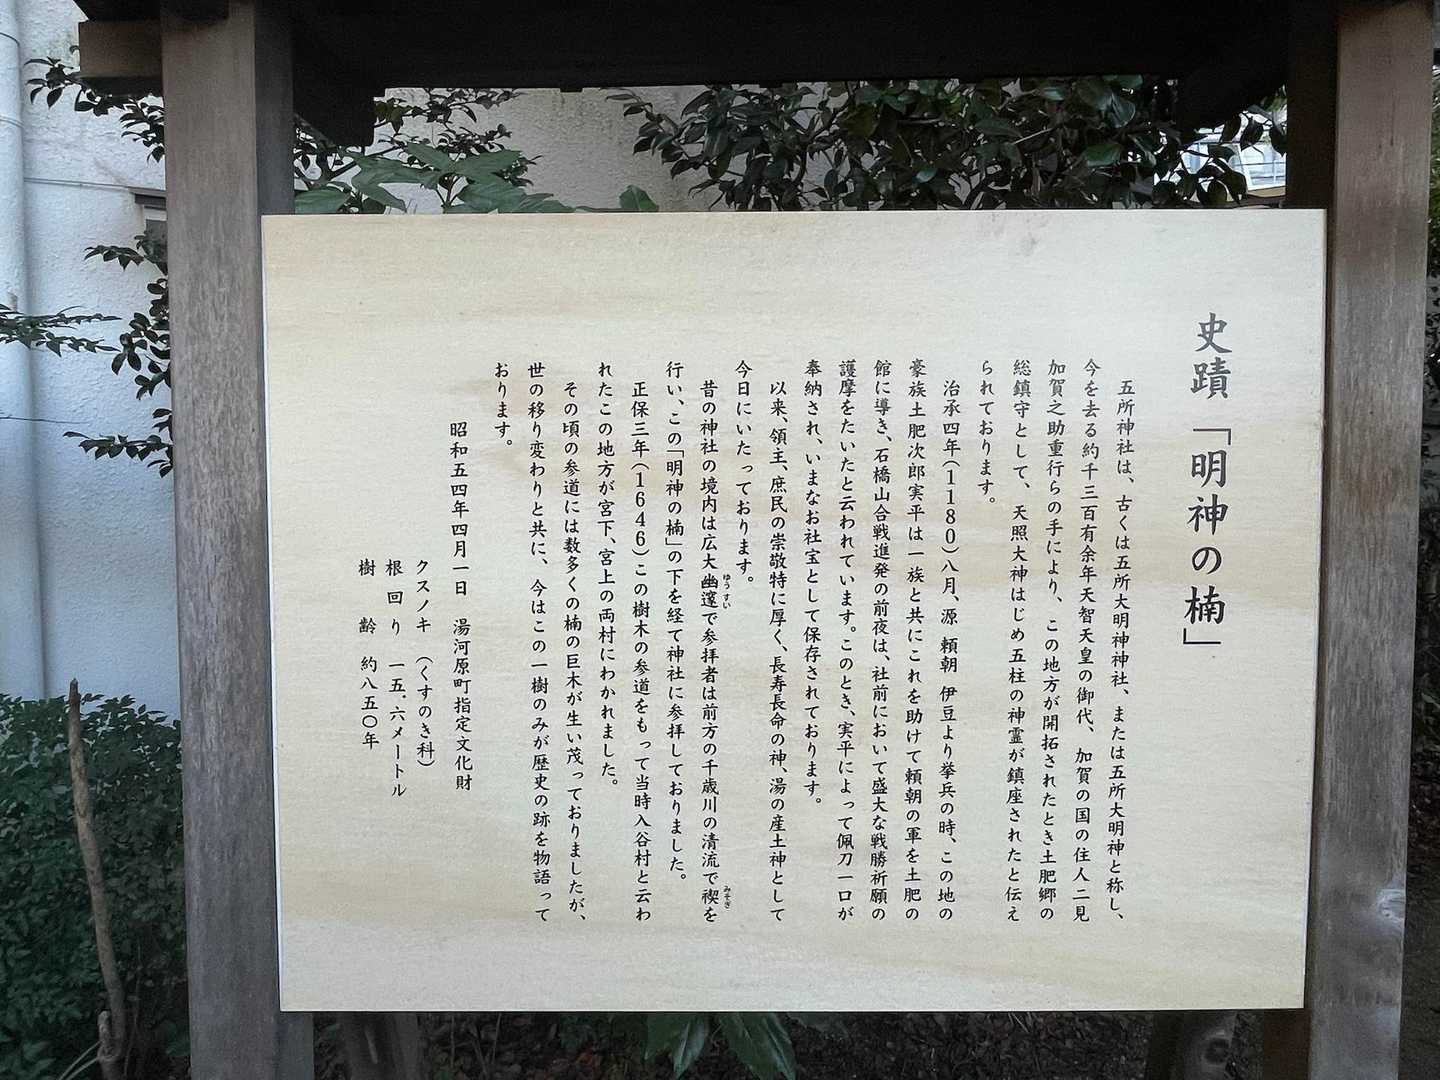 史蹟「明神の楠」
五所神社は、古くは五所大明神神社、または五所大明神と称し、
今を去る約千三百有余年天智天皇の御代、加賀の国の住人二見
加賀之助重行らの手により、この地方が開拓されたとき土肥郷の
総鎮守として、天照大神はじめ五柱の神霊が鎮座されたと伝え
られております。
治承四年(1180)八月、源 頼朝 伊豆より挙兵の時、この地の
豪族土肥次郎実平は一族と共にこれを助けて頼朝の軍を土肥の
館に導き、石橋山合戦進発の前夜は、社前において盛大な戦勝祈願の
護摩をたいたと云われています。このとき、実平によって佩刀一口が
奉納され、いまなお社宝として保存されております。
以来、領主、庶民の崇敬特に厚く、長寿長命の神、湯の産土神として
今日にいたっております。
昔の神社の境内は広大幽邃で参拝者は前方の千歳川の清流で禊を
ゆうすい
みそぎ
行い、この「明神の楠」の下を経て神社に参拝しておりました。
正保三年(1646)この樹木の参道をもって当時入谷村と云わ
れたこの地方が宮下、宮上の両村にわかれました。
その頃の参道には数多くの楠の巨木が生い茂っておりましたが、
世の移り変わりと共に、今はこの一樹のみが歴史の跡を物語って
おります。
昭和五四年四月一日 湯河原町指定文化財
クスノキ (くすのき科)
根回り 一五.六メートル
樹齢 約八五〇年